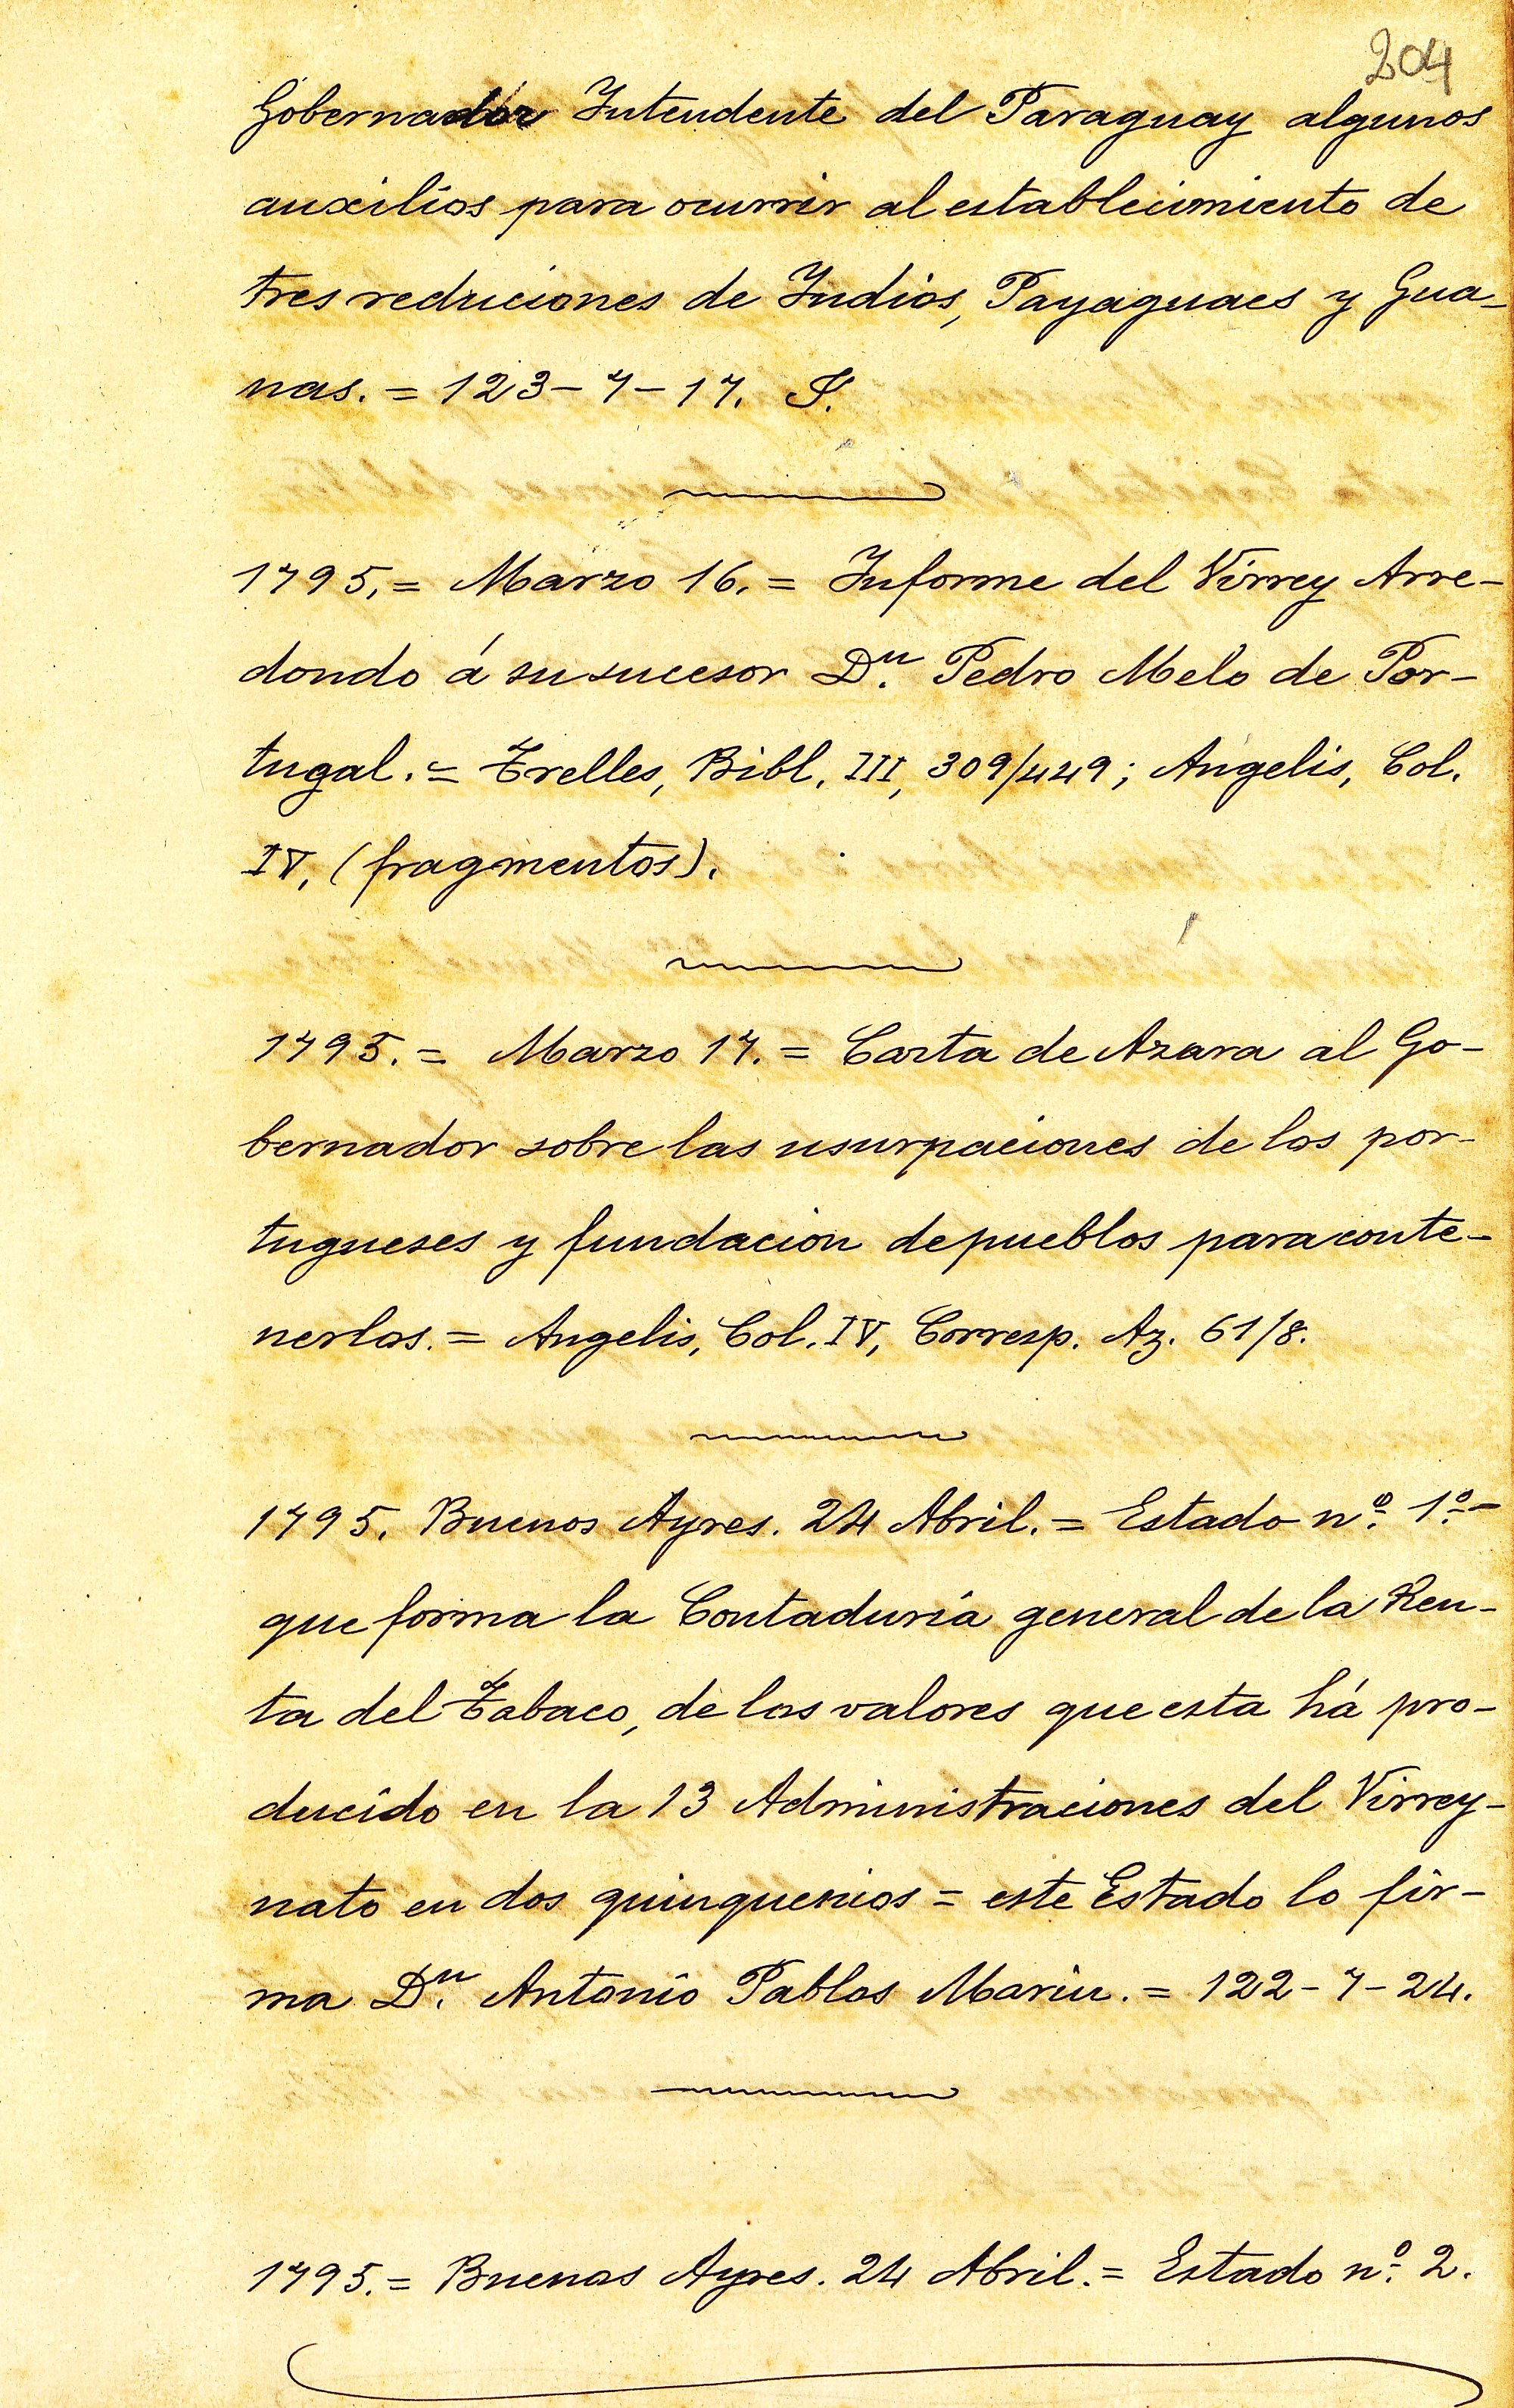 204
Gobernador Intendente del Paraguay algunos
auxilios para ocurrir al establecimiento de
tres reduciones de Indios, Payaguaes y Gua-
nas. = 123-7-17. S.
1795. = Marzo 16. = Informe del Virrey Arre-
dondo á su sucesor Dⁿ. Pedro Melo de Por-
tugal. = Trelles, Bibl. III, 309/449; Angelis, Col.
IV, (fragmentos).
1795. = Marzo 17. = Carta de Azara al Go-
bernador sobre las usurpaciones de los por-
tugueses y fundacion de pueblos para conte-
nerlos. = Angelis, Col. IV, Corresp. Az. 61/8.
1795. Buenos Ayres. 24 Abril. = Estado nº. 1º.-
que forma la Contaduría general de la Ren-
ta del Tabaco, de los valores que esta há pro-
ducido en la 13 Administraciones del Virrey-
nato en dos quinquenios = este Estado lo fir-
ma Dⁿ. Antonio Pablos Marin. = 122-7-24.
1795. = Buenos Ayres. 24 Abril. = Estado nº. 2.